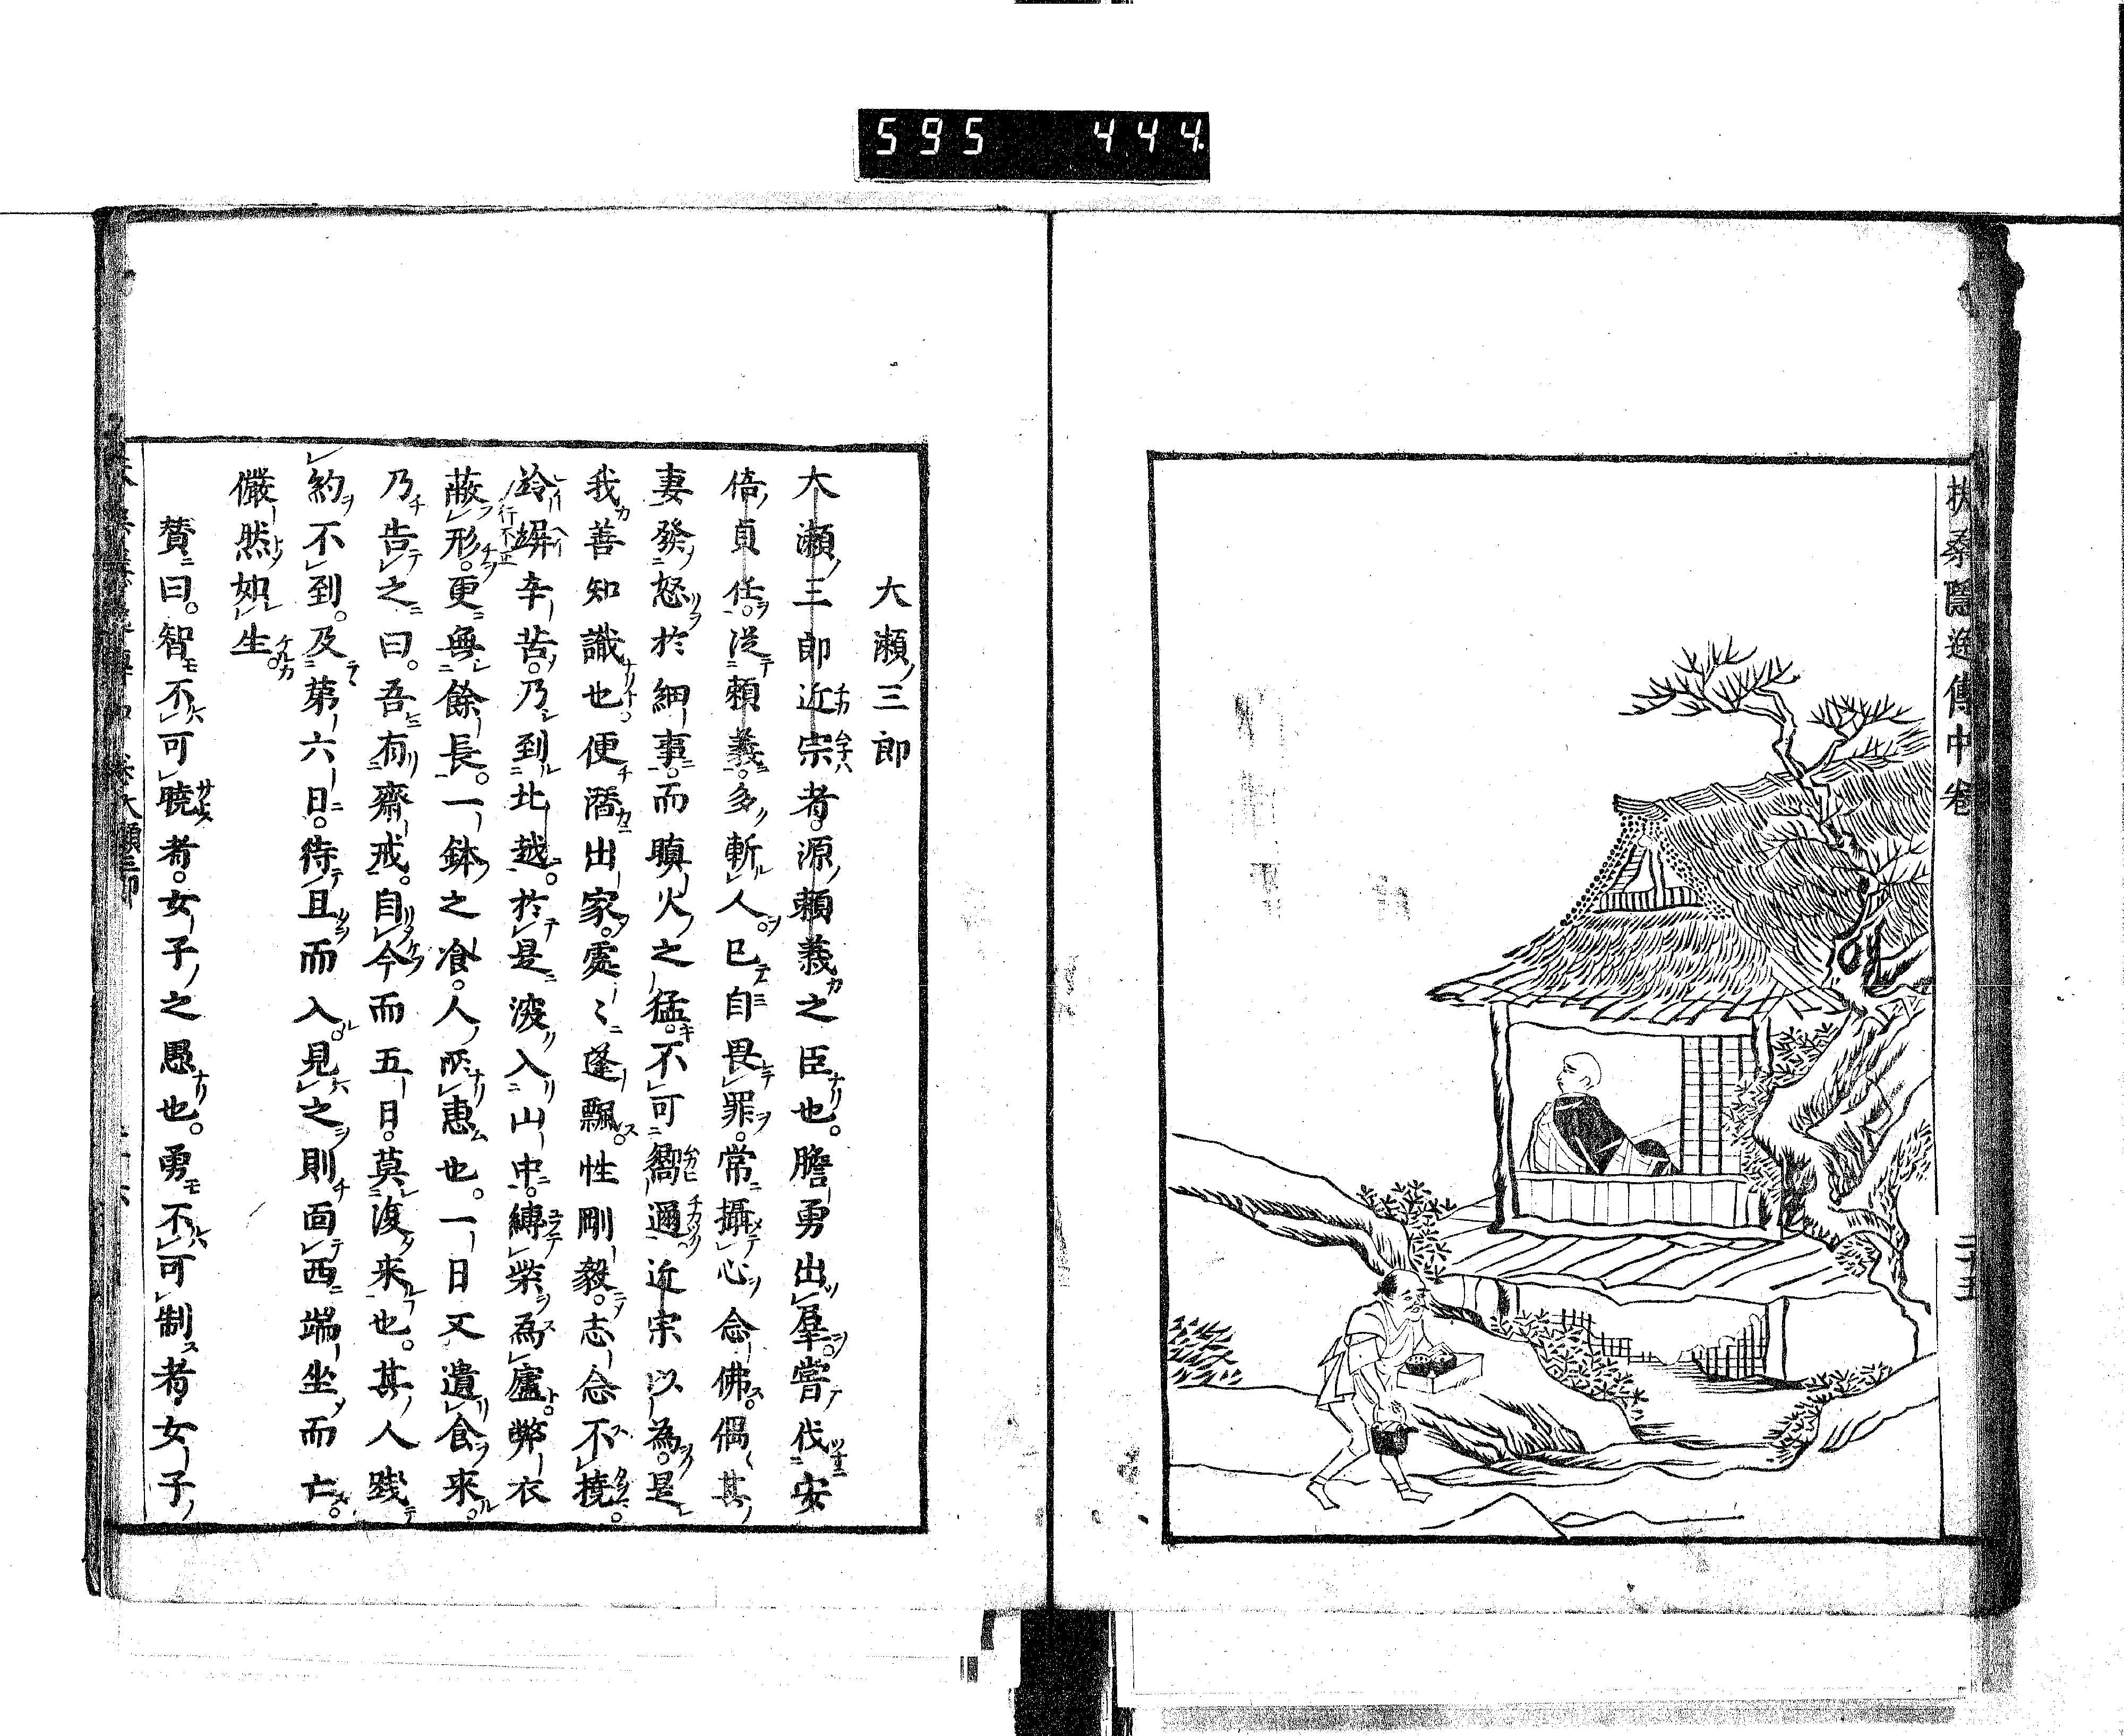 595 444
扶桑隱逸傳中卷
二十五
大瀬三郎
大瀬三郎近宗者。源頼義之臣也。膽勇出羣。嘗伐安
倍貞任。從頼義。多斬人。已自畏罪。常攝心念佛。偶其
妻發怒於細事。而瞋火之猛。不可嚮邇。近宗以為。是
我善知識也。便潛出家。處〻蓬飄。性剛毅。志念不撓。
跉竮行不正辛苦。乃到北越。於是深入山中。縛柴為廬。弊衣
蔽形。更無餘長。一鉢之飡。人所惠也。一日又遺食来。
乃告之曰。吾有齋戒。自今而五日。莫復来也。其人踐
約不到。及第六日。待旦而入。見之則面西端坐而亡。
儼然如生。
賛曰。智不可曉者。女子之愚也。勇不可制者。女子
大瀬三郎